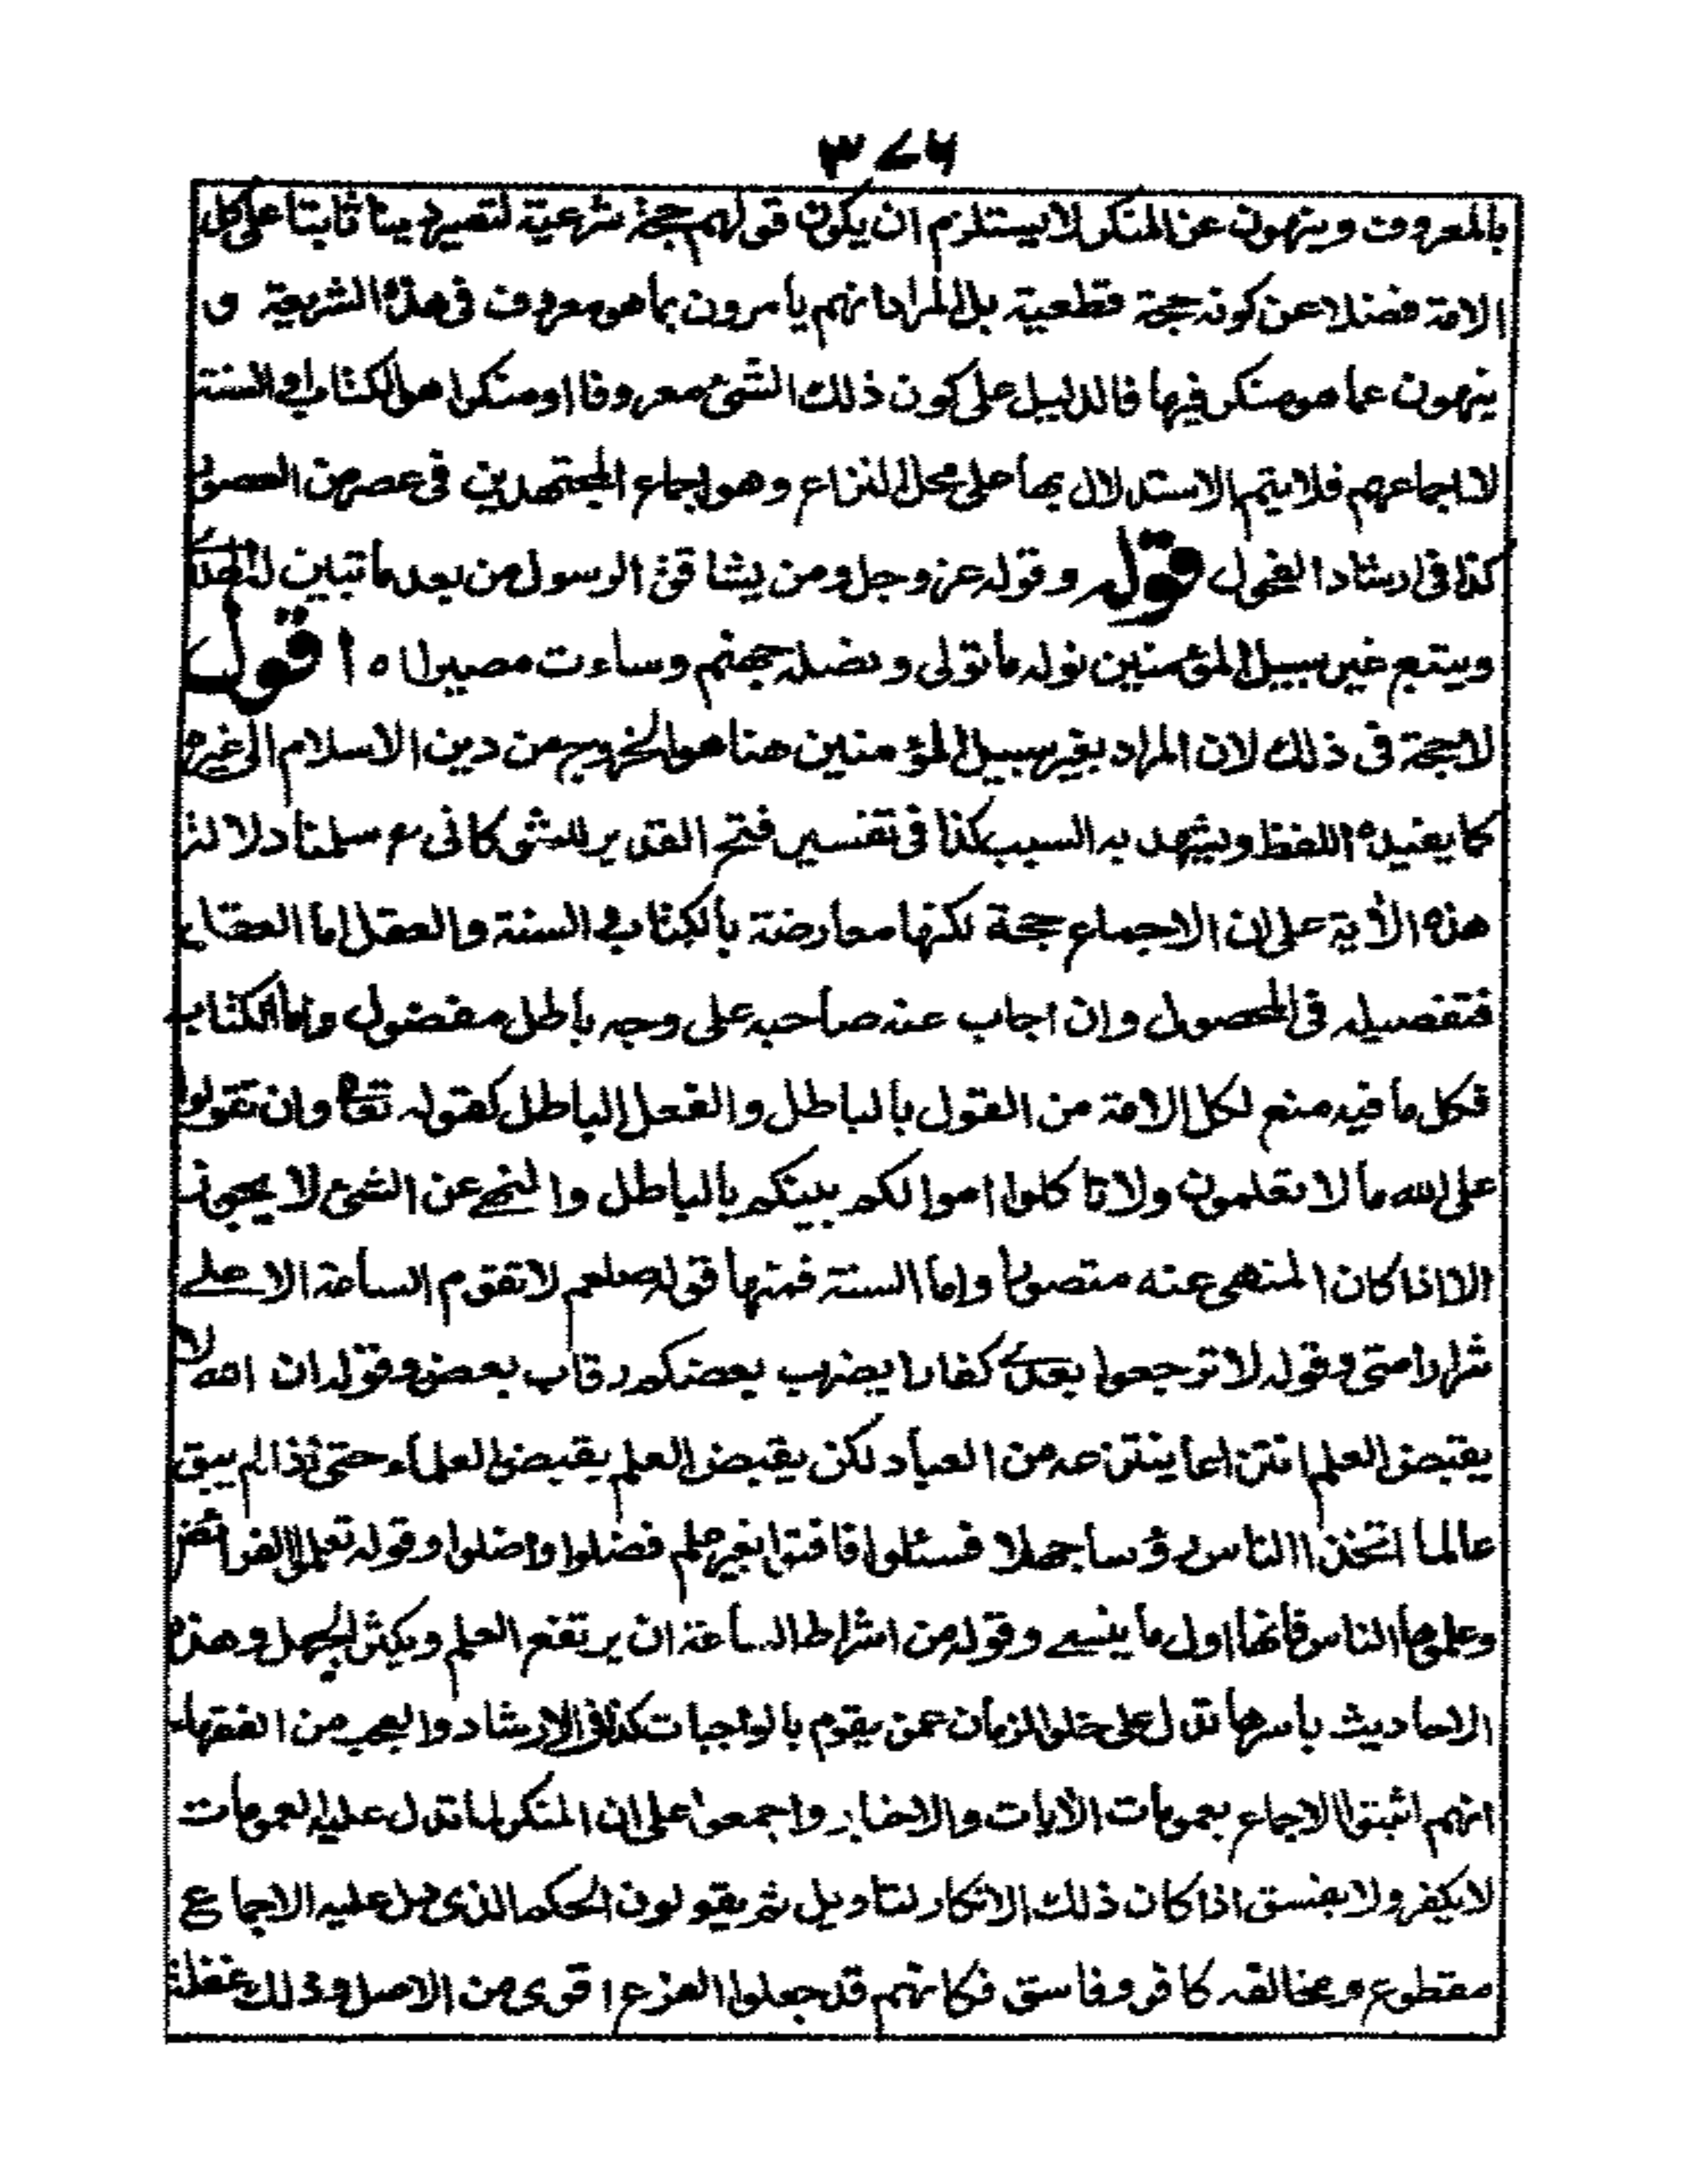 ۳۷۶
بالمعروف وينهون عن المنكر لا يستلزم ان يكون قولهم حجة شرعية لتصير دينا ثابتا على كل
الامة فضلا عن كونه حجة قطعية بل المراد انهم يامرون بما هو معروف فى هذه الشريعة و
ينهون عما هو منكر فيها فالدليل على كون ذلك الشئ معروفا او منكرا هو الكتاب او السنة
لا اجماعهم فلا يتم الاستدلال بها على محل النزاع وهو اجماع المجتهدين فى عصر من العصور
كذا فى ارشاد الفحول قوله وقوله عز وجل ومن يشاقق الرسول من بعد ما تبين له الهدى
ويتبع غير سبيل المؤمنين نوله ما تولى ونصله جهنم وساءت مصيرا ه اقول
لا حجة فى ذلك لان المراد بغير سبيل المؤمنين هنا هو الخروج من دين الاسلام الى غيره
كما يفيده اللفظ ويشهد به السبب كذا فى تفسير فتح القدير للشوكانى ع سلمنا دلالة
هذه الأية على ان الاجماع حجة لكنها معارضة بالكتاب و السنة والعقل اما العقل
فتفصيله فى المحصول وان اجاب عنه صاحبه على وجه باطل مفضول واما الكتاب
فكل ما فيه منع لكل الامة من القول بالباطل والفعل الباطل كقوله تعا وان تقولوا
على الله ما لا تعلمون ولا تاكلوا اموالكم بينكم بالباطل والنهى عن الشئ لا يجوز
الا اذا كان المنهى عنه متصورا واما السنة فمنها قوله صلعم لا تقوم الساعة الا على
شرار امتى وقوله لا ترجعوا بعدى كفارا يضرب بعضكم رقاب بعض وقوله ان الله لا
يقبض العلم انتزاعا ينتزعه من العباد لكن يقبض العلم بقبض العلماء حتى اذا لم يبق
عالما اتخذ الناس رؤسا جهلا فسئلوا فافتوا بغير علم فضلوا واضلوا وقوله تعلموا الفرائض
وعلموها الناس فانها اول ما ينسى وقوله من اشراط الساعة ان يرتفع العلم ويكثر الجهل وهذه
الاحاديث باسرها تدل على خلو الزمان عمن يقوم بالواجبات كذا فى الارشاد والعجب من الفقهاء
انهم اثبتوا الاجماع بعمومات الأيات والاخبار واجمعوا على ان المنكر لما تدل عليه العمومات
لا يكفر ولا يفسق اذا كان ذلك الانكار لتاويل ثم يقولون الحكم الذى دل عليه الاجماع
مقطوع ومخالفه كافر وفاسق فكانهم قد جعلوا الفرع اقوى من الاصل وذلك غفلة